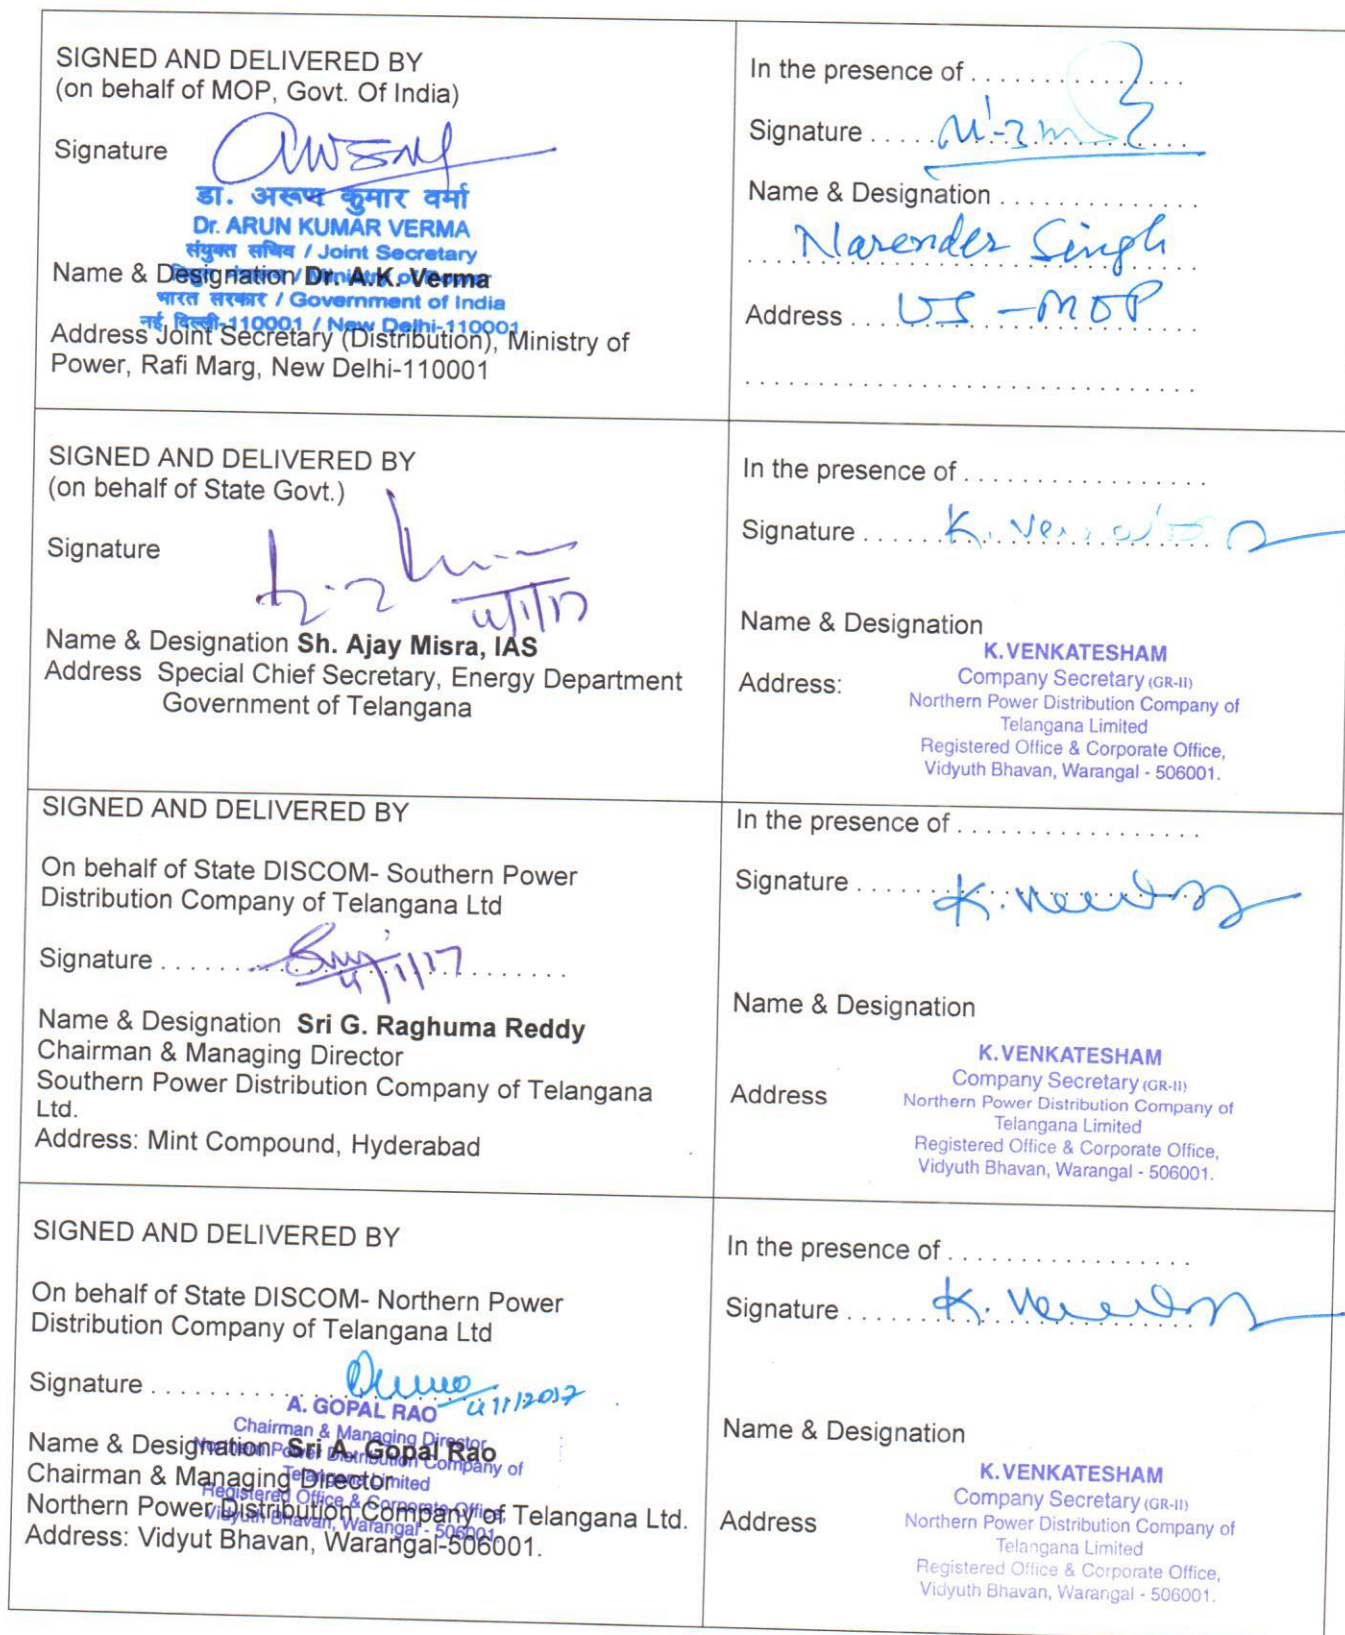 SIGNED AND DELIVERED BY
(on behalf of MOP, Govt. Of India)
Signature
डा. अरूण कुमार वर्मा
Dr. ARUN KUMAR VERMA
संयुक्त सचिव / Joint Secretary
Name & Designation Dr. A.K. Verma
भारत सरकार / Government of India
नई दिल्ली-110001 / New Delhi-110001
Address Joint Secretary (Distribution), Ministry of
Power, Rafi Marg, New Delhi-110001
In the presence of . . . . . . . . . . . . . . . .
Signature . . . . . . . . . . . . . . . . . . . . . . . .
Name & Designation . . . . . . . . . . . . . .
Narender Singh
Address . . . US - MOP
. . . . . . . . . . . . . . . . . . . . . . . . . . . . . . . .
SIGNED AND DELIVERED BY
(on behalf of State Govt.)
Signature
Name & Designation Sh. Ajay Misra, IAS
Address Special Chief Secretary, Energy Department
Government of Telangana
In the presence of . . . . . . . . . . . . . . . . .
Signature . . . . . .
Name & Designation
K.VENKATESHAM
Address: Company Secretary (GR-II)
Northern Power Distribution Company of
Telangana Limited
Registered Office & Corporate Office,
Vidyuth Bhavan, Warangal - 506001.
SIGNED AND DELIVERED BY
On behalf of State DISCOM- Southern Power
Distribution Company of Telangana Ltd
Signature . . . . . . . 4/1/17 . . . . . . .
Name & Designation Sri G. Raghuma Reddy
Chairman & Managing Director
Southern Power Distribution Company of Telangana
Ltd.
Address: Mint Compound, Hyderabad
In the presence of . . . . . . . . . . . . . . . . .
Signature . . . . . .
Name & Designation
K.VENKATESHAM
Address Company Secretary (GR-II)
Northern Power Distribution Company of
Telangana Limited
Registered Office & Corporate Office,
Vidyuth Bhavan, Warangal - 506001.
SIGNED AND DELIVERED BY
On behalf of State DISCOM- Northern Power
Distribution Company of Telangana Ltd
Signature . . . . . . . . . . 4/1/2017
A. GOPAL RAO
Chairman & Managing Director
Name & Designation Sri A. Gopal Rao
Northern Power Distribution Company of
Telangana Limited
Chairman & Managing Director
Registered Office & Corporate Office,
Northern Power Distribution Company of Telangana Ltd.
Vidyuth Bhavan, Warangal - 506001.
Address: Vidyut Bhavan, Warangal-506001.
In the presence of . . . . . . . . . . . . . . . . .
Signature . . . . . .
Name & Designation
K.VENKATESHAM
Address Company Secretary (GR-II)
Northern Power Distribution Company of
Telangana Limited
Registered Office & Corporate Office,
Vidyuth Bhavan, Warangal - 506001.